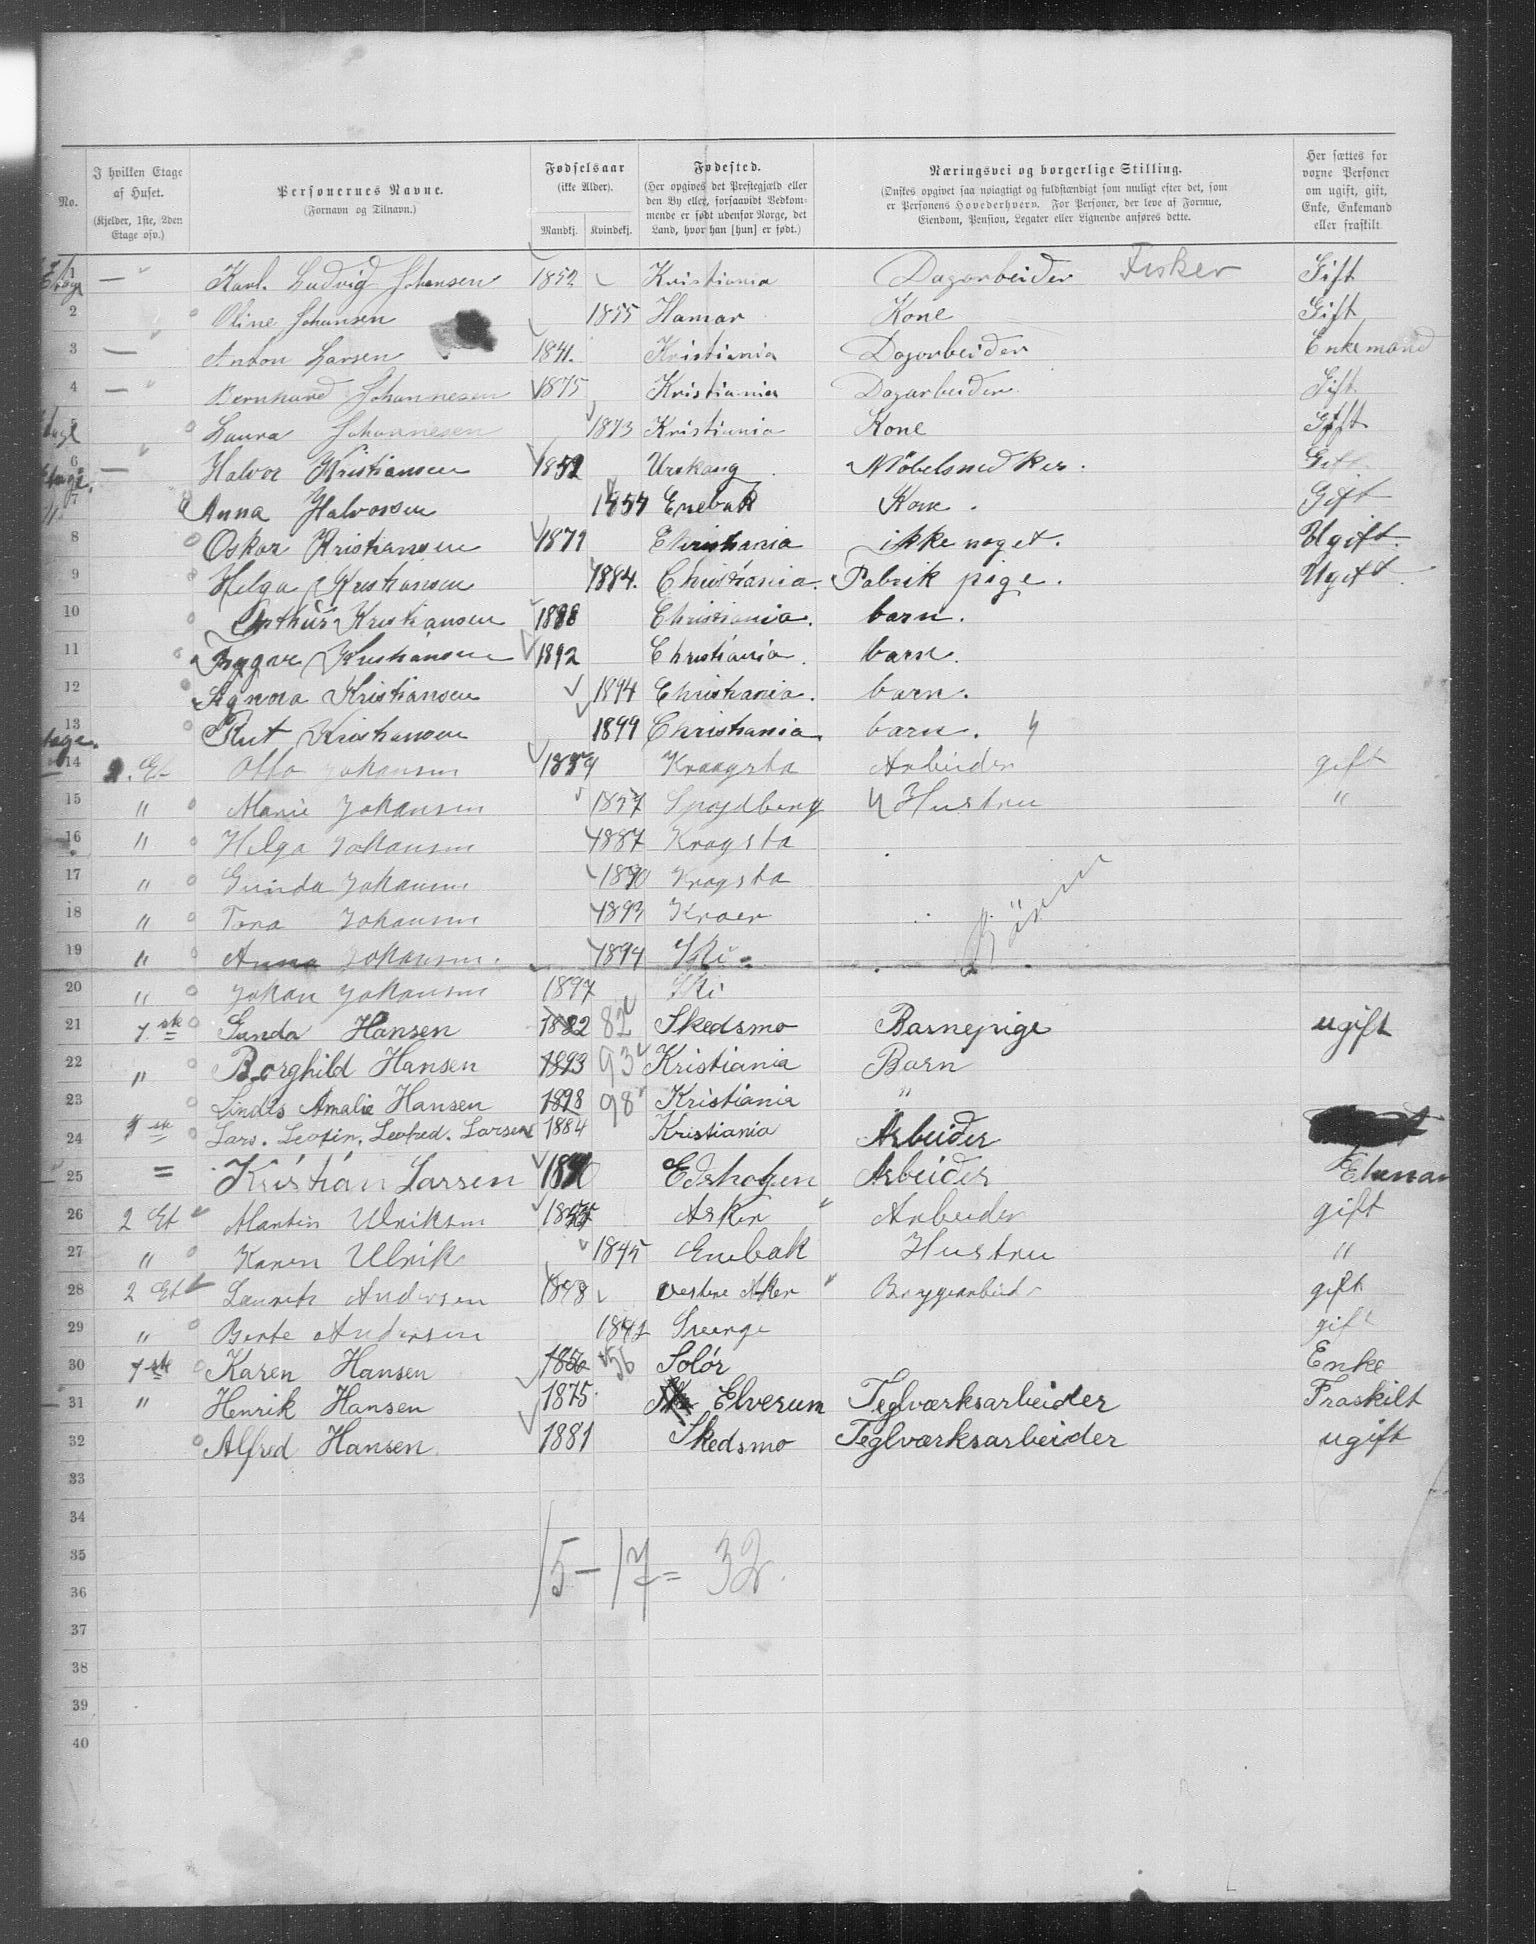 No.
I hvilken Etage af Huset.
(Kjelder, 1ste, 2den Etage osv.)
Personernes Navne.
(Fornavn og Tilnavn.)
Fødselsaar
(ikke Alder).
Mandkj. Kvindekj.
Fødested.
(Her opgives det Prestegjæld eller
den By eller, forsaavidt Vedkom-
mende er født udenfor Norge, det
Land, hvor han [hun] er født.)
Næringsvei og borgerlige Stilling.
(Ønskes opgivet saa nøiagtigt og fuldstændigt som muligt efter det, som
er Personens Hovederhverv. For Personer, der leve af Formue,
Eiendom, Pension, Legater eller Lignende anføres dette.
Her sættes for
voxne Personer
om ugift, gift,
Enke, Enkemand
eller fraskilt.
1 — Karl. Ludvig Johansen 1852 Kristiania Dagarbeider Fisker Gift
2 Oline Johansen 1855 Hamar Kone Gift
3 — Anton Larsen 1841. Kristiania Dagarbeider Enkemand
4 — Bernhard Johannesen 1875 Kristiania Dagarbeider. Gift
5 Laura Johannesen 1873 Kristiania Kone Gift
6 — Halvor Kristiansen 1852 Urskaug Møbelsnedker. Gift
7 Anna Halvorsen 1854 Enebak Kone. Gift
8 Oskar Kristiansen 1871 Christiania ikke noget. Ugift.
9 Helga Kristiansen 1884. Christiania. Fabrik pige. Ugift.
10 Arthur Kristiansen 1888 Christiania. barn.
11 Trygve Kristiansen 1892 Christiania. barn.
12 Agnora Kristiansen 1894 Christiania. barn.
13 Rut Kristiansen 1899 Christiania. barn.
14 2. Et Otto Johansen Kraagsta Arbeider gift
15 " Marie Johansen 1857 Spydberg Hustru "
16 " Helga Johansen 1887 Kragsta
17 " Gunda Johansen 1890 Kragsta
18 " Tora Johansen 1893 Kroer
19 " Anna Johansen. 1894 Ski
20 " Johan Johansen 1897 Ski
21 1ste Gunda Hansen 1882 82 Skedsmo Barnepige ugift
22 " Borghild Hansen 1893 93 Kristiania Barn
23 Lindis Amalie Hansen 1898 98 Kristiania "
24 1ste Lars. Leofred. Larsen 1884 Kristiania Arbeider
25 = Kristian Larsen Edshogen Arbeider
26 2 Et Martin Ulriksen Asker Arbeider gift
27 " Karen Ulrik 1845 Enebak Hustru "
28 2 Et Laurits Andersen 1848 vestre Aker Bryggearbeider gift
29 " Berte Andersen 1842 gift
30 1ste Karen Hansen 1856 56 Solør Enke
31 " Henrik Hansen 1875 Elverum Teglværksarbeider Fraskilt
32 Alfred Hansen. 1881 Skedsmo Teglværksarbeider ugift
33
34
35
15 – 17 = 32.
36
37
38
39
40